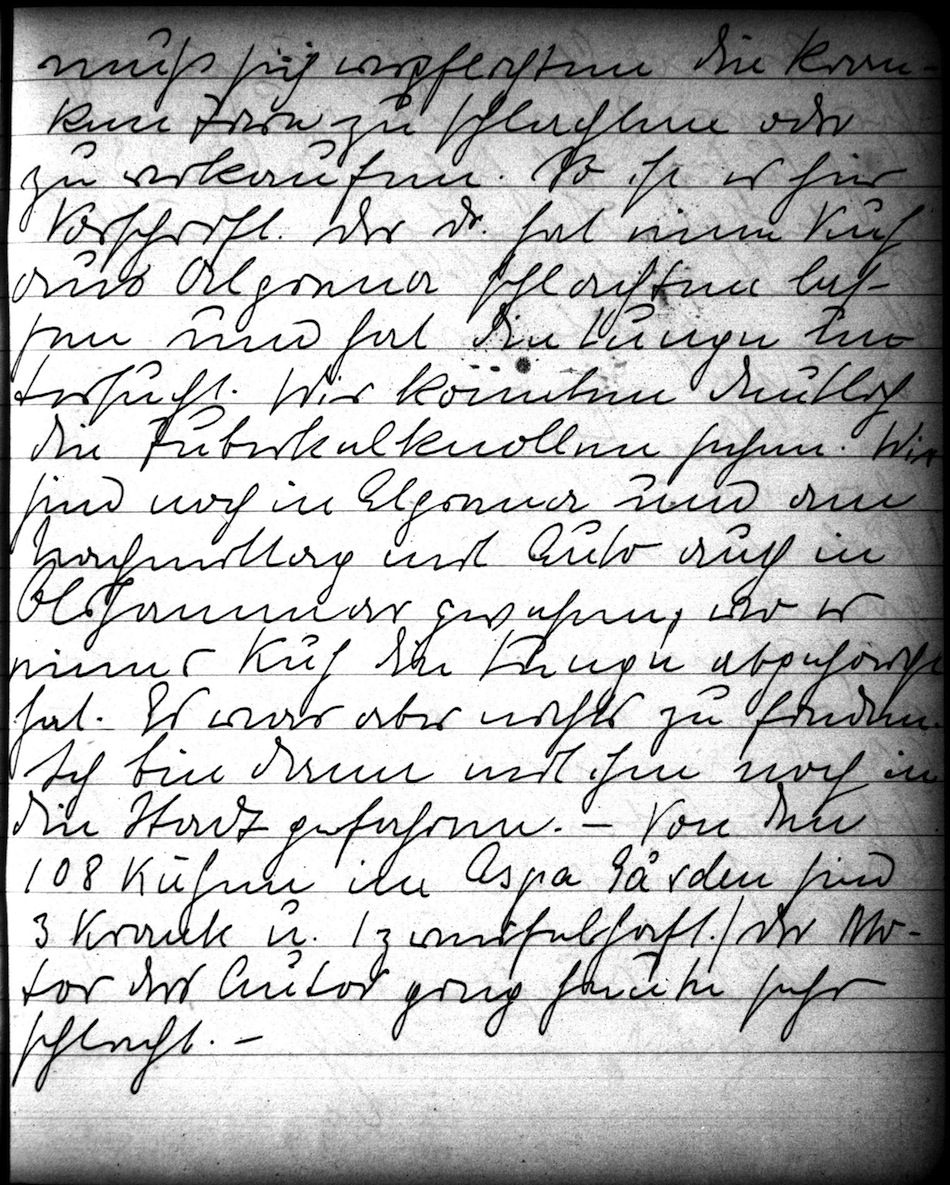 muß sich verpflichten die kran-
ken Tiere zu schlachten oder
zu verkaufen. So ist es hier
Vorschrift. Der Dr. hat eine Kuh
aus Algrena schlachten las-
sen und hat die Lunge un-
tersucht. Wir konnten deutlich
die Tuberkelknollen sehen. Wir
sind noch in Elgrena und am
Nachmittag mit Auto auch in
Olshammar gewesen, wo er
einer Kuh die Lunge abgehorcht
hat. Es war aber nichts zu finden.
Ich bin dann mit ihm noch in
die Stadt gefahren. – Von den
108 Kühen in Aspa Gården sind
3 krank u. 1 zweifelhaft./ Der Mo-
tor des Autos ging heute sehr
schlecht. –